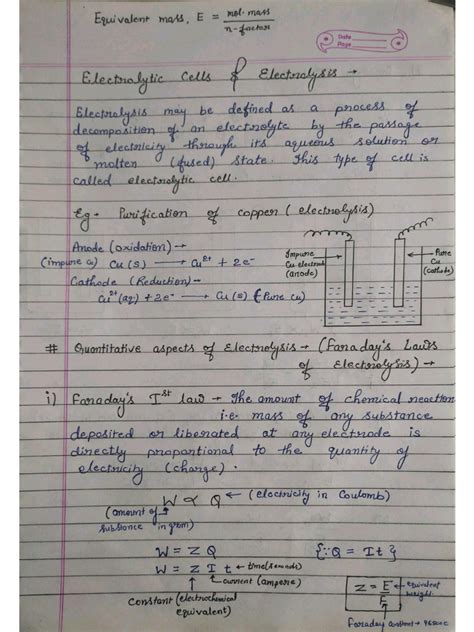 Equivalent mass, E = mol. mass / n-factor
Date
Page
Electrolytic Cells & Electrolysis →
Electrolysis may be defined as a process of
decomposition of an electrolyte by the passage
of electricity through its aqueous solution or
molten (fused) state. This type of cell is
called electrolytic cell.
Eg - Purification of copper (electrolysis)
Anode (oxidation) →
(impure Cu) Cu(s) → Cu²⁺ + 2e⁻
Cathode (Reduction) →
Cu²⁺(aq) + 2e⁻ → Cu(s) (Pure Cu)
Impure
Cu electrode
(anode)
Pure
Cu
(cathode)
# Quantitative aspects of Electrolysis → (Faraday's Laws
of Electrolysis) →
i) Faraday's Ist law → The amount of chemical reaction
i.e. mass of any substance
deposited or liberated at any electrode is
directly proportional to the quantity of
electricity (charge).
W ∝ Q ← (electricity in Coulomb)
(amount of
substance in gram)
W = Z Q {∵ Q = It}
W = Z I t ← time (seconds)
current (ampere)
Constant (electrochemical
equivalent)
Z = E/F ← equivalent
weight
Faraday constant → 96500 C